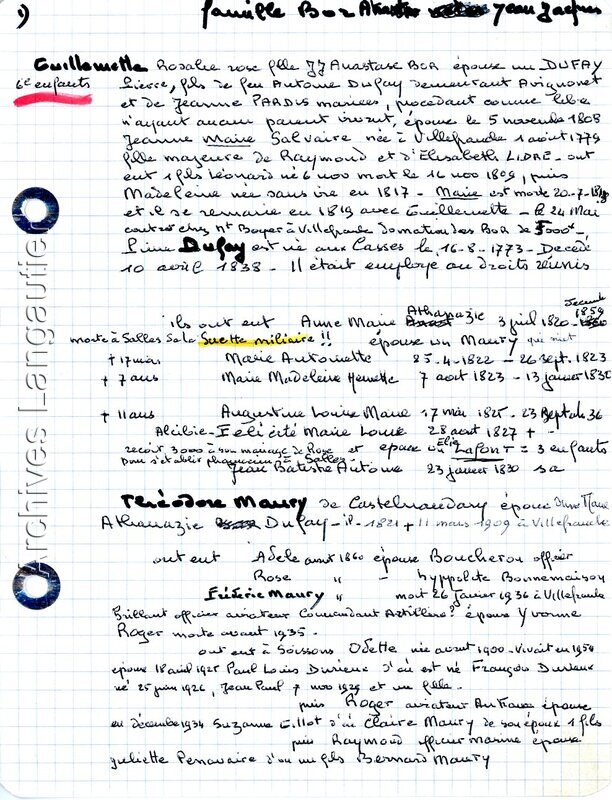 1) famille Bor Jean Jacques
Guillemette Rosalie rose fille JJ Anastase BOR épouse un DUFAY
6e enfants
Pierre, fils de feu Antoine Dufay demeurant Avignonet
et de Jeanne PARDIS mariées, procédant comme libre
n'ayant aucun parent vivant, épouse le 5 novembre 1808
Jeanne Marie Salvaire née à Villefranche 1 août 1779
fille majeure de Raymond et d'Elisabeth LIDRE - ont
eut 1 fils Léonard né 6 nov mort le 16 nov 1809, puis
Madeleine née sans vie en 1817 - Marie est morte 20-7-1818
et il se remarie en 1819 avec Guillemette - le 24 Mai
contrat chez Mt Boyer à Villefranche donation des BOR de
Pierre Dufay est né aux Casses le 16-8-1773 - Décédé
10 avril 1838 - Il était employé au droits réunis
ils ont eut Anne Marie Athanazie 3 juil 1820 - 1859
morte à Salles Suette miliaire !! épouse un Maury qui suit
+ 17 mois Marie Antoinette 25-4-1822 - 26 sept. 1823
+ 7 ans Marie Madeleine Henriette 7 août 1823 - 13 janvier 1831
+ 11 ans Augustine Louise Marie 17 mai 1825 - 23 Sept 36
Alcibie - Félicité Marie Louise 28 août 1827 + -
reçoit 3000 à son mariage de Rose et épouse un LAFONT = 3 enfants
pour s'établir pharmacien à Salles
Jean Batiste Antoine 23 janvier 1830 sa
Théodore Maury de Castelnaudary épouse Anne Marie
Athanazie Dufay - il - 1821 + 11 mars 1909 à Villefranche
ont eut Adele avant 1860 épouse Boucheron officier
Rose " - hyppolite Bonnemaison
Fréderic Maury " mort 26 janvier 1936 à Villefranche
brillant officier aviateur Comandant Artillerie ? épouse Yvonne
Roger morte avant 1935 -
ont eut à Soissons Odette née avant 1900 - Vivait en 1954
épouse 18 avril 1925 Paul Louis Durieux d'où est né François Durieux
né 25 juin 1926, Jean Paul 7 nov 1929 et un fille -
puis Roger aviateur épouse
en décembre 1934 Suzanne Eillot d'où Claire Maury de son époux 1 fils
puis Raymond officier marine épouse
Juliette Penavaire d'où un fils Bernard Maury
Archives Langautier